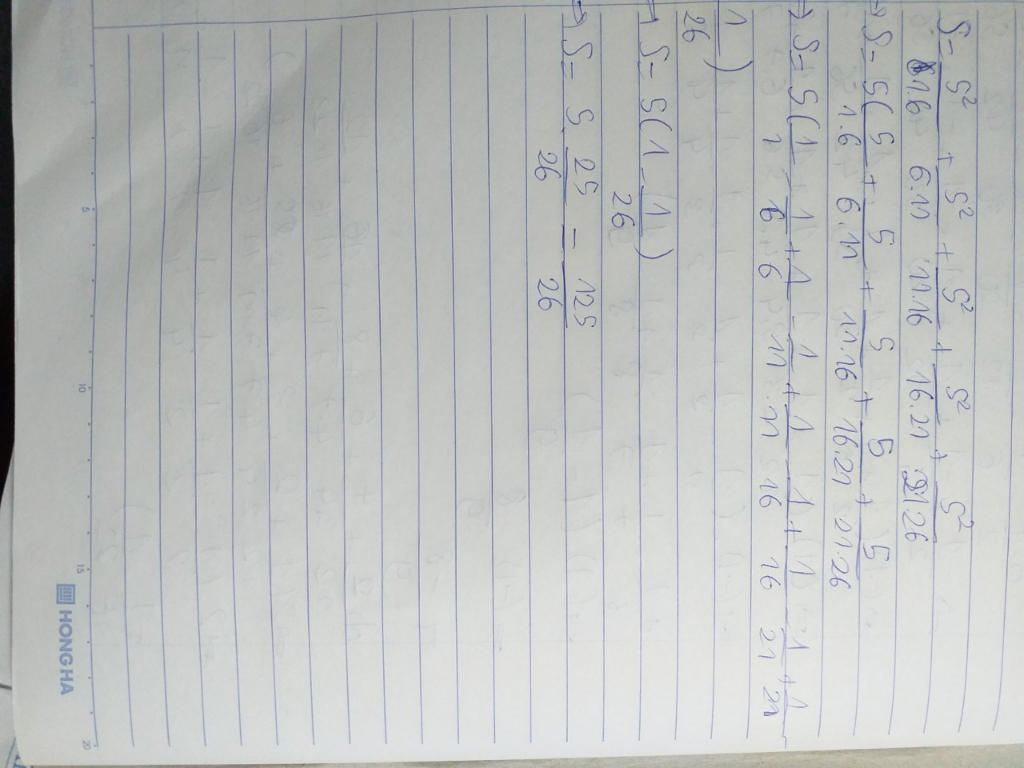 S = 5²/1.6 + 5²/6.11 + 5²/11.16 + 5²/16.21 + 5²/21.26
→ S = 5(5/1.6 + 5/6.11 + 5/11.16 + 5/16.21 + 5/21.26
→ S = 5(1/1 - 1/6 + 1/6 - 1/11 + 1/11 - 1/16 + 1/16 - 1/21 + 1/21
1/26)
→ S = 5(1 - 1/26)
→ S = 5 25/26 = 125/26
5 10 15 20
HONG HA